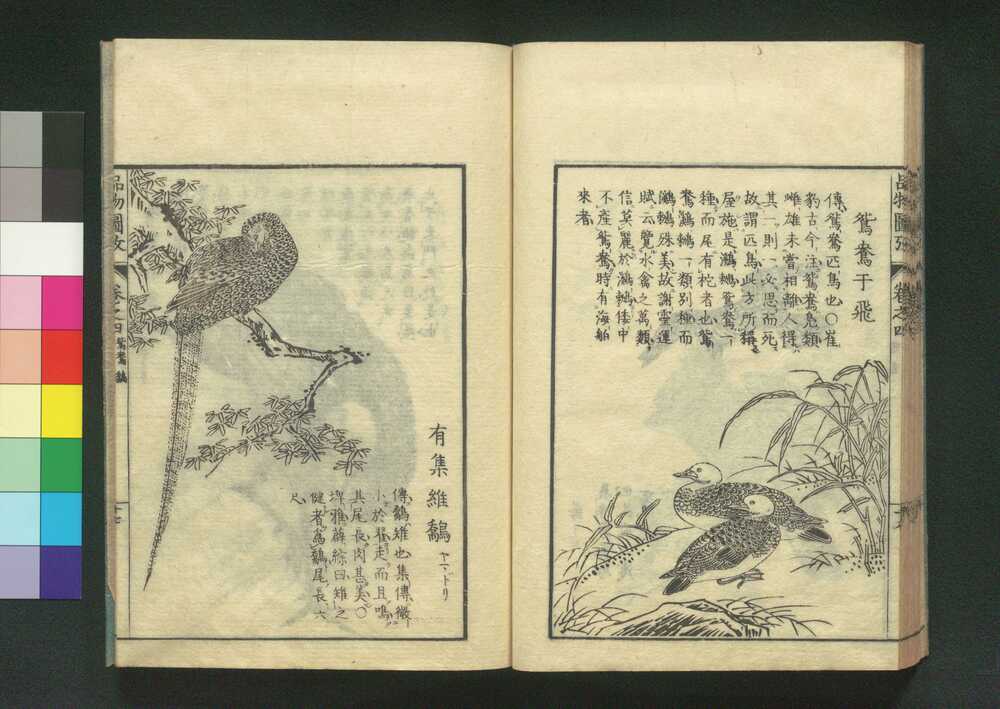 鴛鴦于飛
傳鴛鴦匹鳥也〇崔
豹古今注鴛鴦鳧類
雌雄未嘗相離人得
其一則一必思而死
故謂匹鳥此方所稱
屋施是鸂鶒鴛鴦一
種而尾有柁者也鴛
鴦鸂鶒一類別種而
鸂鶒殊美故謝靈運
賦云覽水禽之萬類
信莫麗於鸂鶒倭中
不產鴛鴦時有海舶
來者
品物圖攷
卷之四
有集維鷮 ヤマドリ
傳鷮雉也集傳微
小於翟走而且鳴
其尾長肉甚美〇
埤雅薛綜曰雉之
健者為鷮尾長六
尺
品物圖攷
卷之四